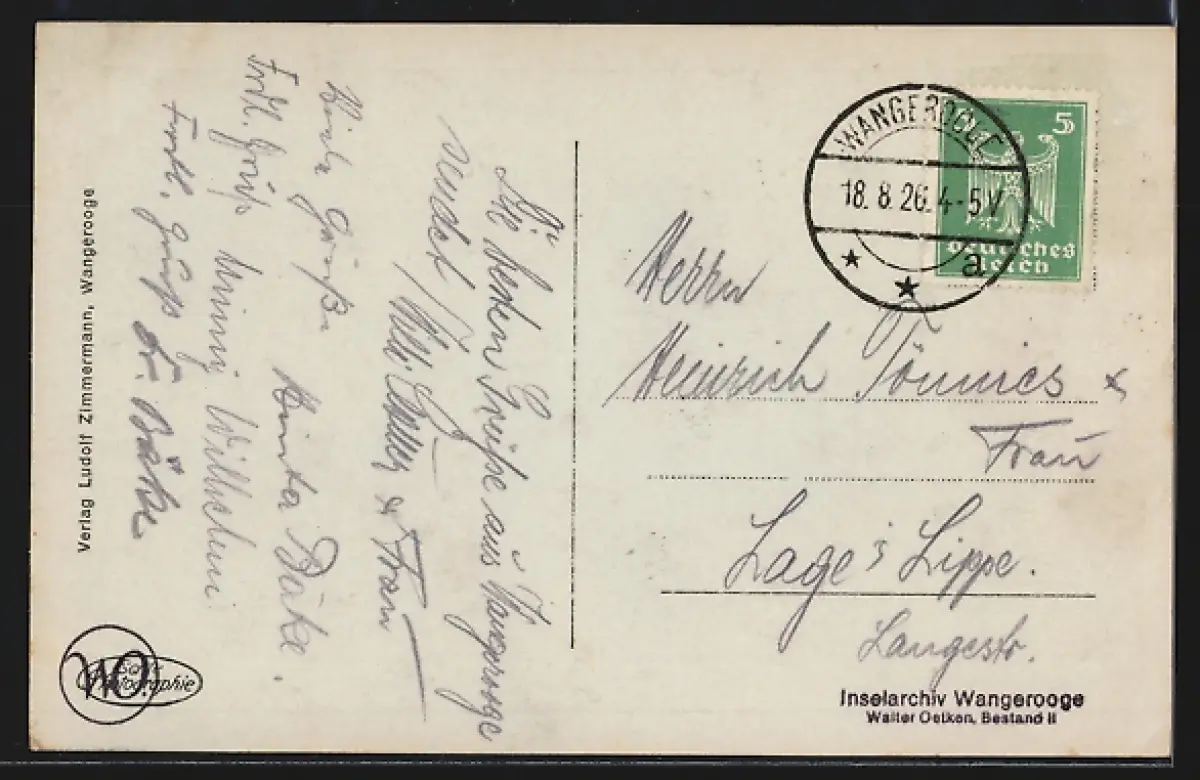 Verlag Ludolf Zimmermann, Wangerooge
Die besten Grüße aus Wangerooge
sendet Willi &
Frau
Viele Grüße
Minta Bäke.
Frdl. Grüß Minny Wilhelm
Frdl. Grüß Fr. Bäke
WO
Photographie
WANGEROOGE
18.8.26.4-5V
a
5
Deutsches
Reich
Herrn
Heinrich Tönnies &
Frau
Lage i Lippe.
Langestr.
Inselarchiv Wangerooge
Walter Oetken, Bestand II